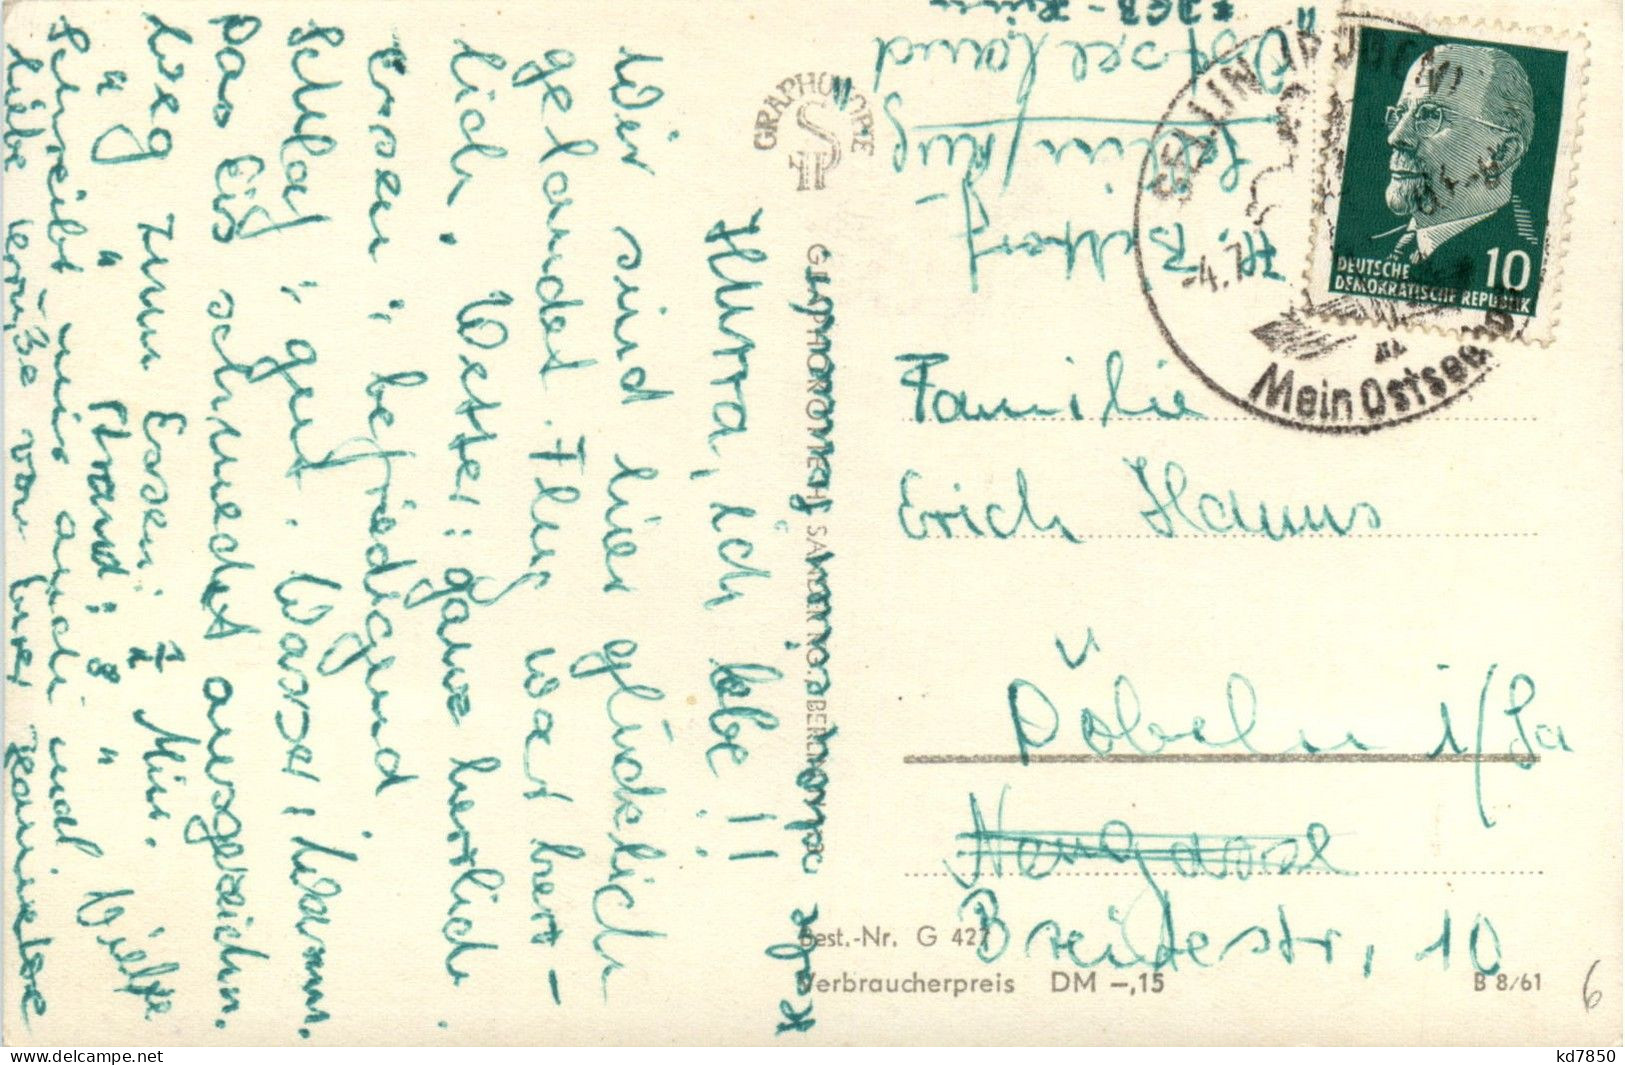 Hurra, ich lebe!!
Wir sind hier glücklich
gelandet. Flug war herr-
lich. Wetter: ganz herrlich
Essen: befriedigend
Schlaf: gut. Wasser: warm.
Das Eis schmeckt ausgezeichn.
Weg zum Essen: 1/2 Min.
" " Strand: 8 "
Schreibt mir auch mal Viele
liebe Grüße von
GRAPHOKOPIE
GRAPHOKOPIE H. SANDER KG. BERLIN
H.
Sellin / Rüg
Ostseeland
SELLIN (RÜGEN)
-4.7
Mein Ostsee
10
DEUTSCHE
DEMOKRATISCHE REPUBLIK
Familie
Erich Hanns
Döbeln i/Sa
Neugasse
Breitestr, 10
Best.-Nr. G 427
Verbraucherpreis DM -,15
B 8/61
6
kd7850